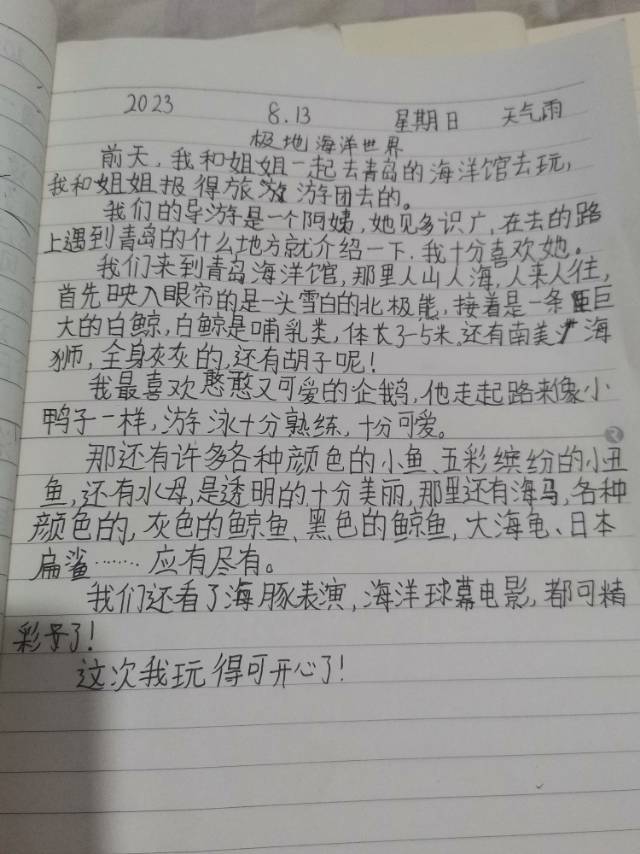 2023 8.13 星期日 天气雨
极地海洋世界
前天,我和姐姐一起去青岛的海洋馆去玩,
我和姐姐报得旅游团去的。
我们的导游是一个阿姨,她见多识广,在去的路
上遇到青岛的什么地方就介绍一下,我十分喜欢她。
我们来到青岛海洋馆,那里人山人海,人来人往,
首先映入眼帘的是一头雪白的北极熊,接着是一条巨
大的白鲸,白鲸是哺乳类,体长3-5米,还有南美海
狮,全身灰灰的,还有胡子呢!
我最喜欢憨憨又可爱的企鹅,他走起路来像小
鸭子一样,游泳十分熟练,十分可爱。
那还有许多各种颜色的小鱼、五彩缤纷的小丑
鱼,还有水母,是透明的十分美丽,那里还有海马,各种
颜色的,灰色的鲸鱼、黑色的鲸鱼,大海龟、日本
扁鲨……应有尽有。
我们还看了海豚表演,海洋球幕电影,都可精
彩了!
这次我玩得可开心了!